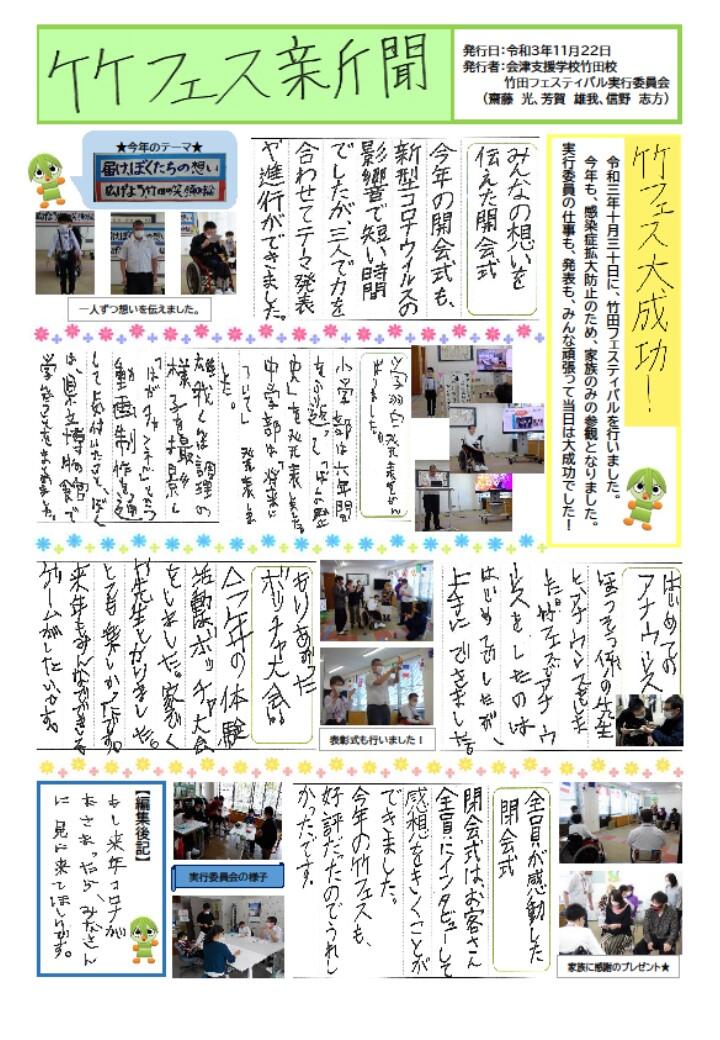 竹フェス新聞
発行日：令和3年11月22日
発行者：会津支援学校竹田校
竹田フェスティバル実行委員会
（齋藤　光、芳賀　雄我、信野　志方）
竹フェス大成功！
令和三年十月三十日に、竹田フェスティバルを行いました。
今年も、感染症拡大防止のため、家族のみの参観となりました。
実行委員の仕事も、発表も、みんな頑張って当日は大成功でした！
みんなの想いを
伝えた開会式
今年の開会式も、
新型コロナウィルスの
影響で短い時間
でしたが、三人で力を
合わせてテーマ発表
や進行ができました。
★今年のテーマ★
届け、ぼくたちの想い
広げよう竹田の笑顔の輪
一人ずつ想いを伝えました。
小学部は六年間
を発表しました。
中学部は「将来に
ついて」発表しま
した。
雄我くんは調理の
様子を撮影し
動画制作を通
して
は、県立博物館で
学んだことをまとめました。
はじめての
アナウンス
ほうそう係の先生
とアナウンスをしました。
はじめてでしたが、
上手にできました。
もりあがった
ボッチャ大会
今年の体験
活動はボッチャ大会
をしました。家ぞく
や先生とかりました。
とても楽しかったです。
来年もみんなでできる
ゲームがしたいです。
表彰式も行いました！
全員が感動した
閉会式
閉会式は、お客さん
全員にインタビューして
感想をきくことが
できました。
今年の竹フェスも、
好評だったのでうれし
かったです。
家族に感謝のプレゼント★
実行委員会の様子
【編集後記】
もし来年コロナが
おさまったら、みなさん
に見に来てほしいです。